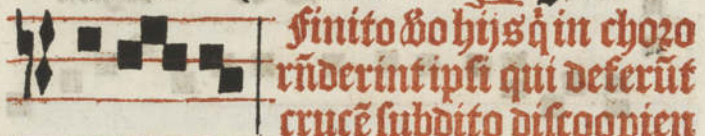 Finito v̄o hijs q̄ in choro
rñderint ipsi qui deferūt
crucē subdito discooꝑien